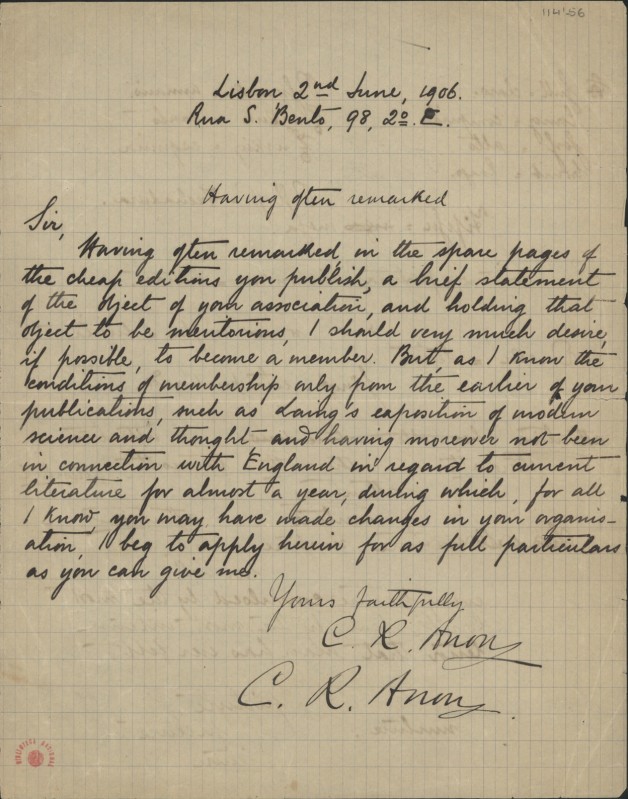 114¹-56
Lisbon 2nd June, 1906.
Rua S. Bento, 98, 2º E.
Having often remarked
Sir,
Having often remarked, in the spare pages of
the cheap editions you publish, a brief statement
of the object of your association, and holding that
object to be meritorious, I should very much desire,
if possible, to become a member. But, as I know the
conditions of membership only from the earlier of your
publications, such as Laing's exposition of modern
science and thought, and having moreover not been
in connection with England in regard to current
literature for almost a year, during which, for all
I know, you may have made changes in your organis-
ation, I beg to apply herein for as full particulars
as you can give me.
Yours faithfully
C. R. Anon
C. R. Anon.